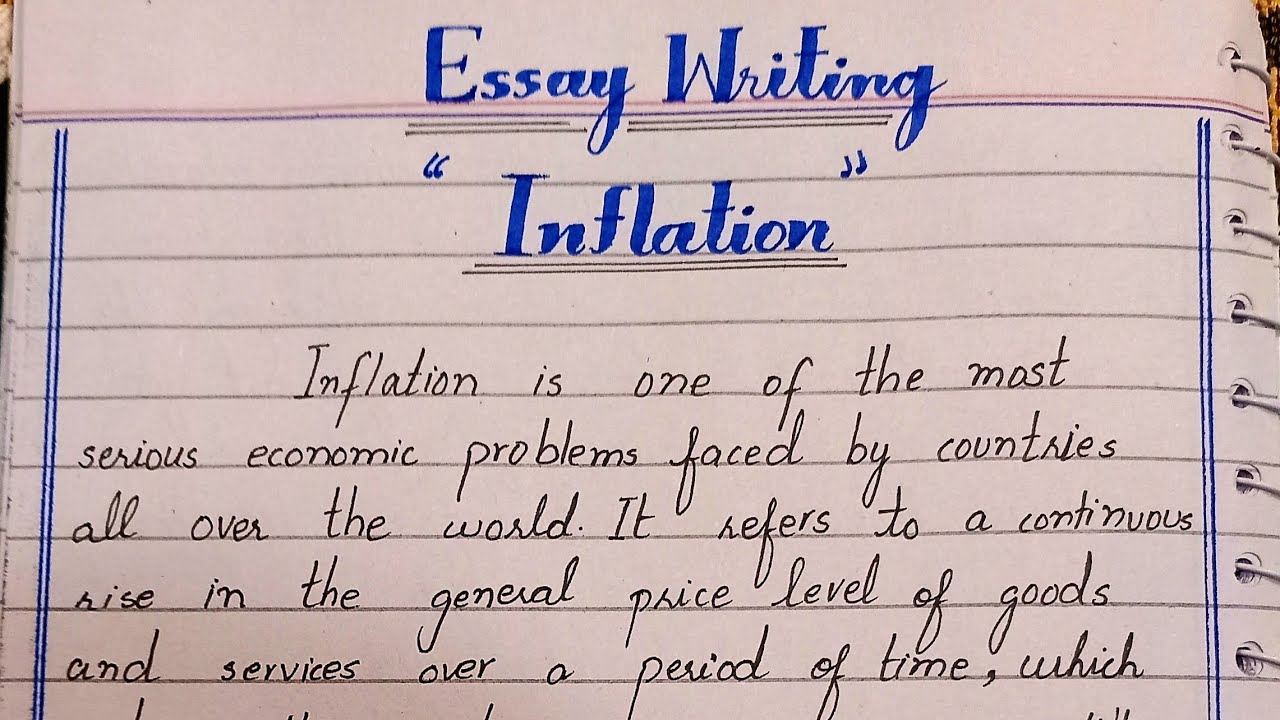 Essay Writing
"Inflation"
Inflation is one of the most
serious economic problems faced by countries
all over the world. It refers to a continuous
rise in the general price level of goods
and services over a period of time, which